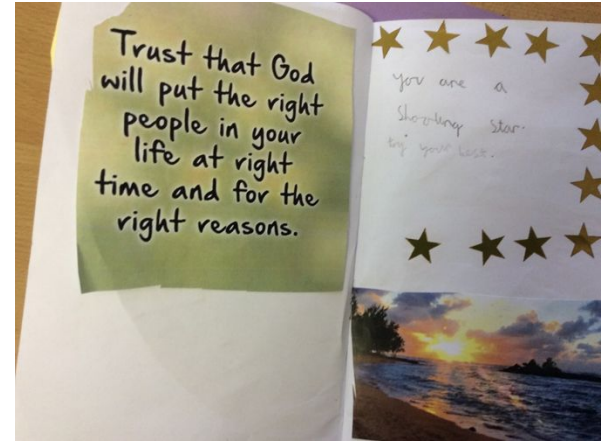 Trust that God
will put the right
people in your
life at right
time and for the
right reasons.
you are a
Shooting Star.
try your best.